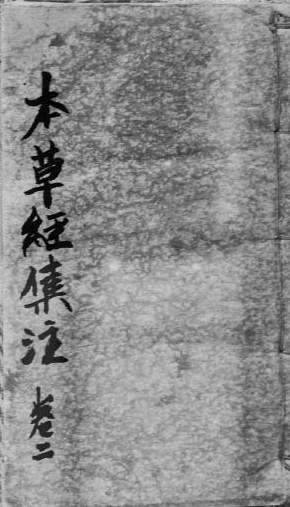 本草經集注 卷二